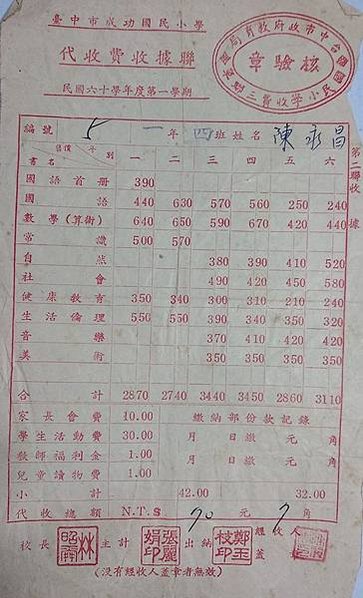 臺中市成功國民小學
代收費收據聯
民國六十學年度第一學期
台中市政府教育局
核驗章
第二聯收據
編號 5 一年 四班姓名 陳永昌
書名 售價 年別 一 二 三 四 五 六
國語首冊 390
國語 440 630 570 560 250 240
數學(算術) 640 650 590 670 420 440
常識 500 570
自然 380 390 410 520
社會 490 420 450 580
健康教育 350 340 300 310 210 240
生活倫理 550 550 390 340 350 320
音樂 370 410 420 420
美術 350 350 350 350
合計 2870 2740 3440 3450 2860 3110
家長會費 10.00 繳納部份款記錄
學生活動費 30.00 月 日繳 元 角
教師福利金 1.00 月 日繳 元 角
兒童讀物費 1.00
小計 42.00 32.00
代收總額 N.T.$ 70 元 7 角
校長 林昭 主計 張麗娟印 出納 鄭玉枝印 經收人蓋
(沒有經收人蓋章者無效)